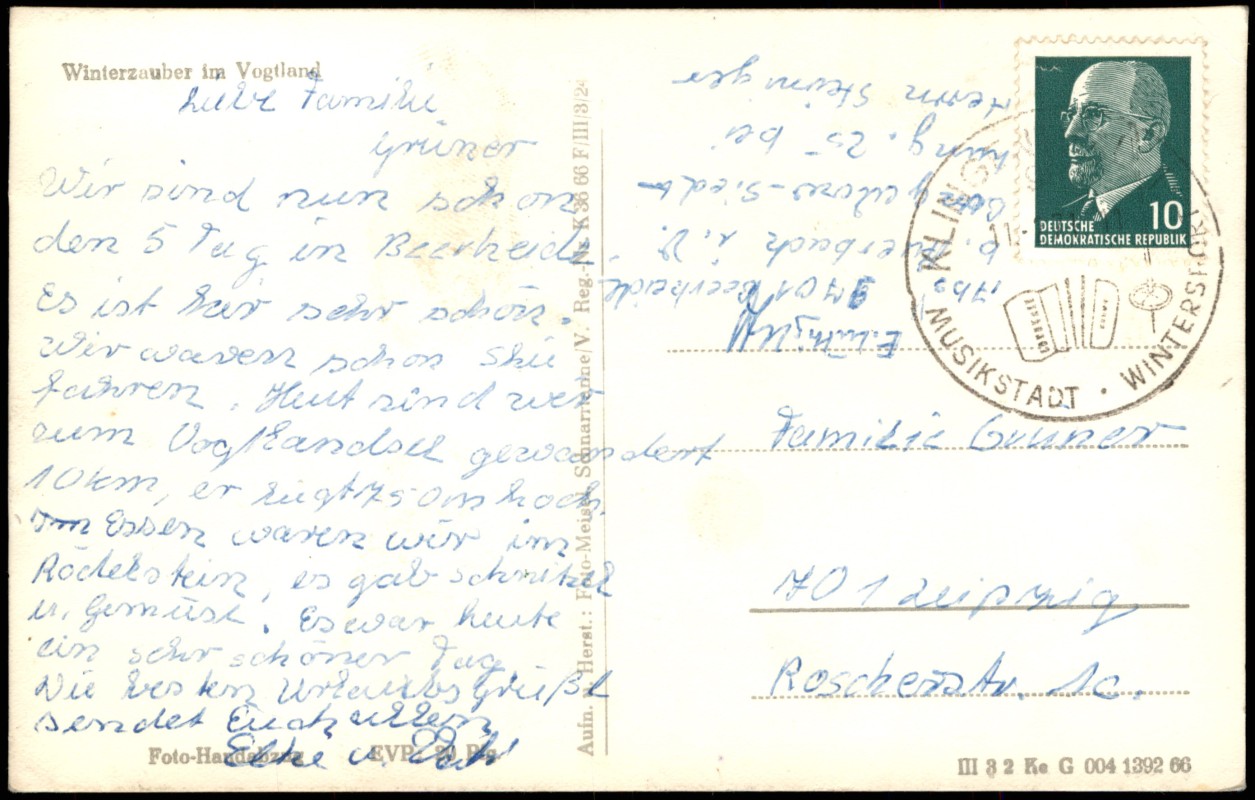 Winterzauber im Vogtland
Liebe Familie
Grüner
Wir sind nun schon
den 5 Tag in Beerheide.
Es ist hir sehr schön.
Wir waren schon Ski
fahren. Heut sind wir
zum Vogtlandsee gewandert
10 km, er liegt 750m hoch.
Im Essen waren wir im
Rödelstein, es gab schnitzel
u. Gemüse. Es war heute
ein sehr schöner Tag
Die besten Urlaubsgrüße
sendet Euch allen
Elke u.
Foto-Handabzug EVP: 20 Pfg.
Aufn. u. Herst.: Foto-Meister Schnarrtanne/V. Reg.-Nr. K 36 66 F/III/3/24
Abs.
9701 Beerheide
b. Auerbach i. V.
Siedl-
ung. 25 bei
Herrn Steiniger
DEUTSCHE
DEMOKRATISCHE REPUBLIK
10
KLINGE
MUSIKSTADT · WINTERSPORT
Familie Grüner
701 Leipzig
Roscherstr. 1c.
III 3 2 Ke G 004 1392 66